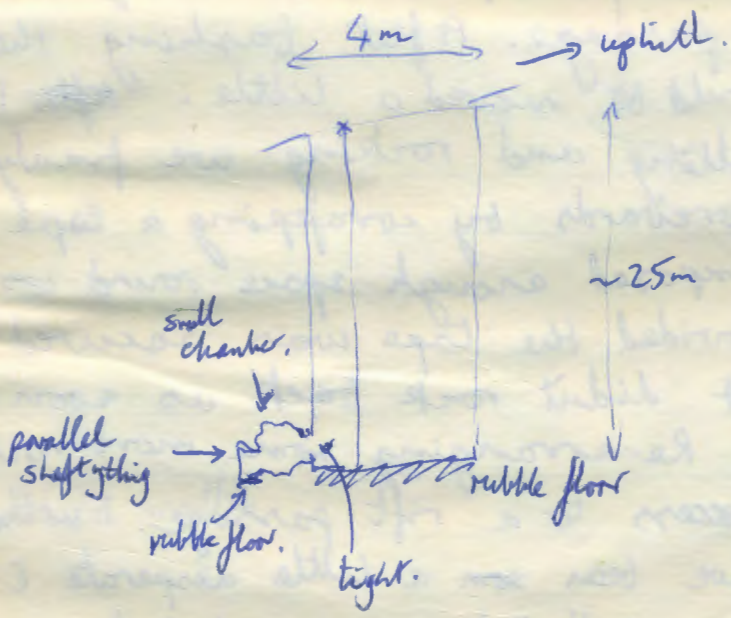 4m
uphill.
~25m
small
chamber.
parallel
shaftything
rubble floor
rubble floor.
tight.